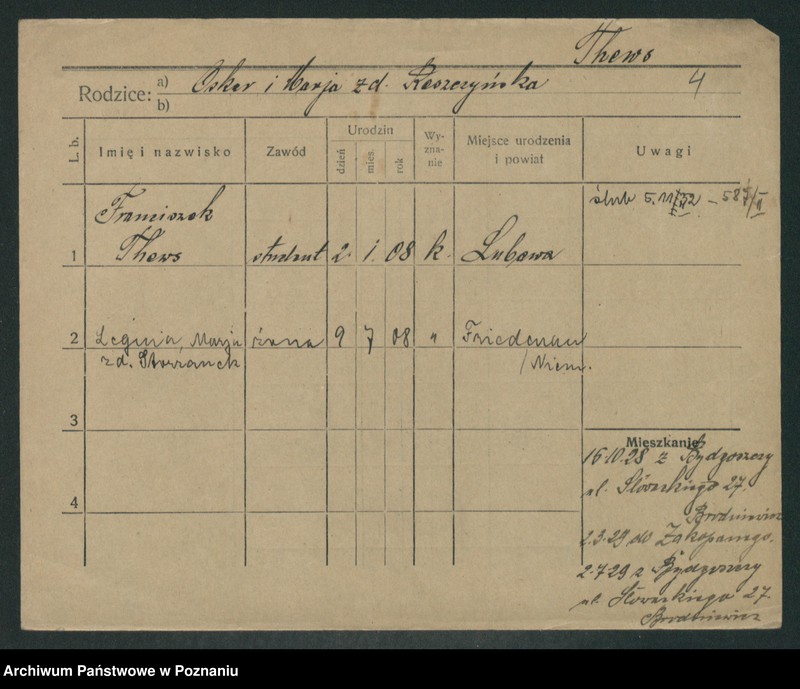 Thews
Rodzice: a) Oskar i Marja zd. Reszczyńska 4
b)
L. b. Imię i nazwisko Zawód Urodzin dzień mies. rok Wyznanie Miejsce urodzenia i powiat Uwagi
ślub 5.11
Franciszek
1 Thews student 2. 1 08 k. Lubawa
2 Legina, Marja żona 9 7 08 " Friedenau
zd. /Niem.
3
Mieszkanie
16.10.28 z Bydgoszczy
ul. Słowackiego 27.
Brodniewicz
4
2.3.29 do Zakopanego.
2.7.29 z Bydgoszczy
ul. Słowackiego 27
Brodniewicz
Archiwum Państwowe w Poznaniu